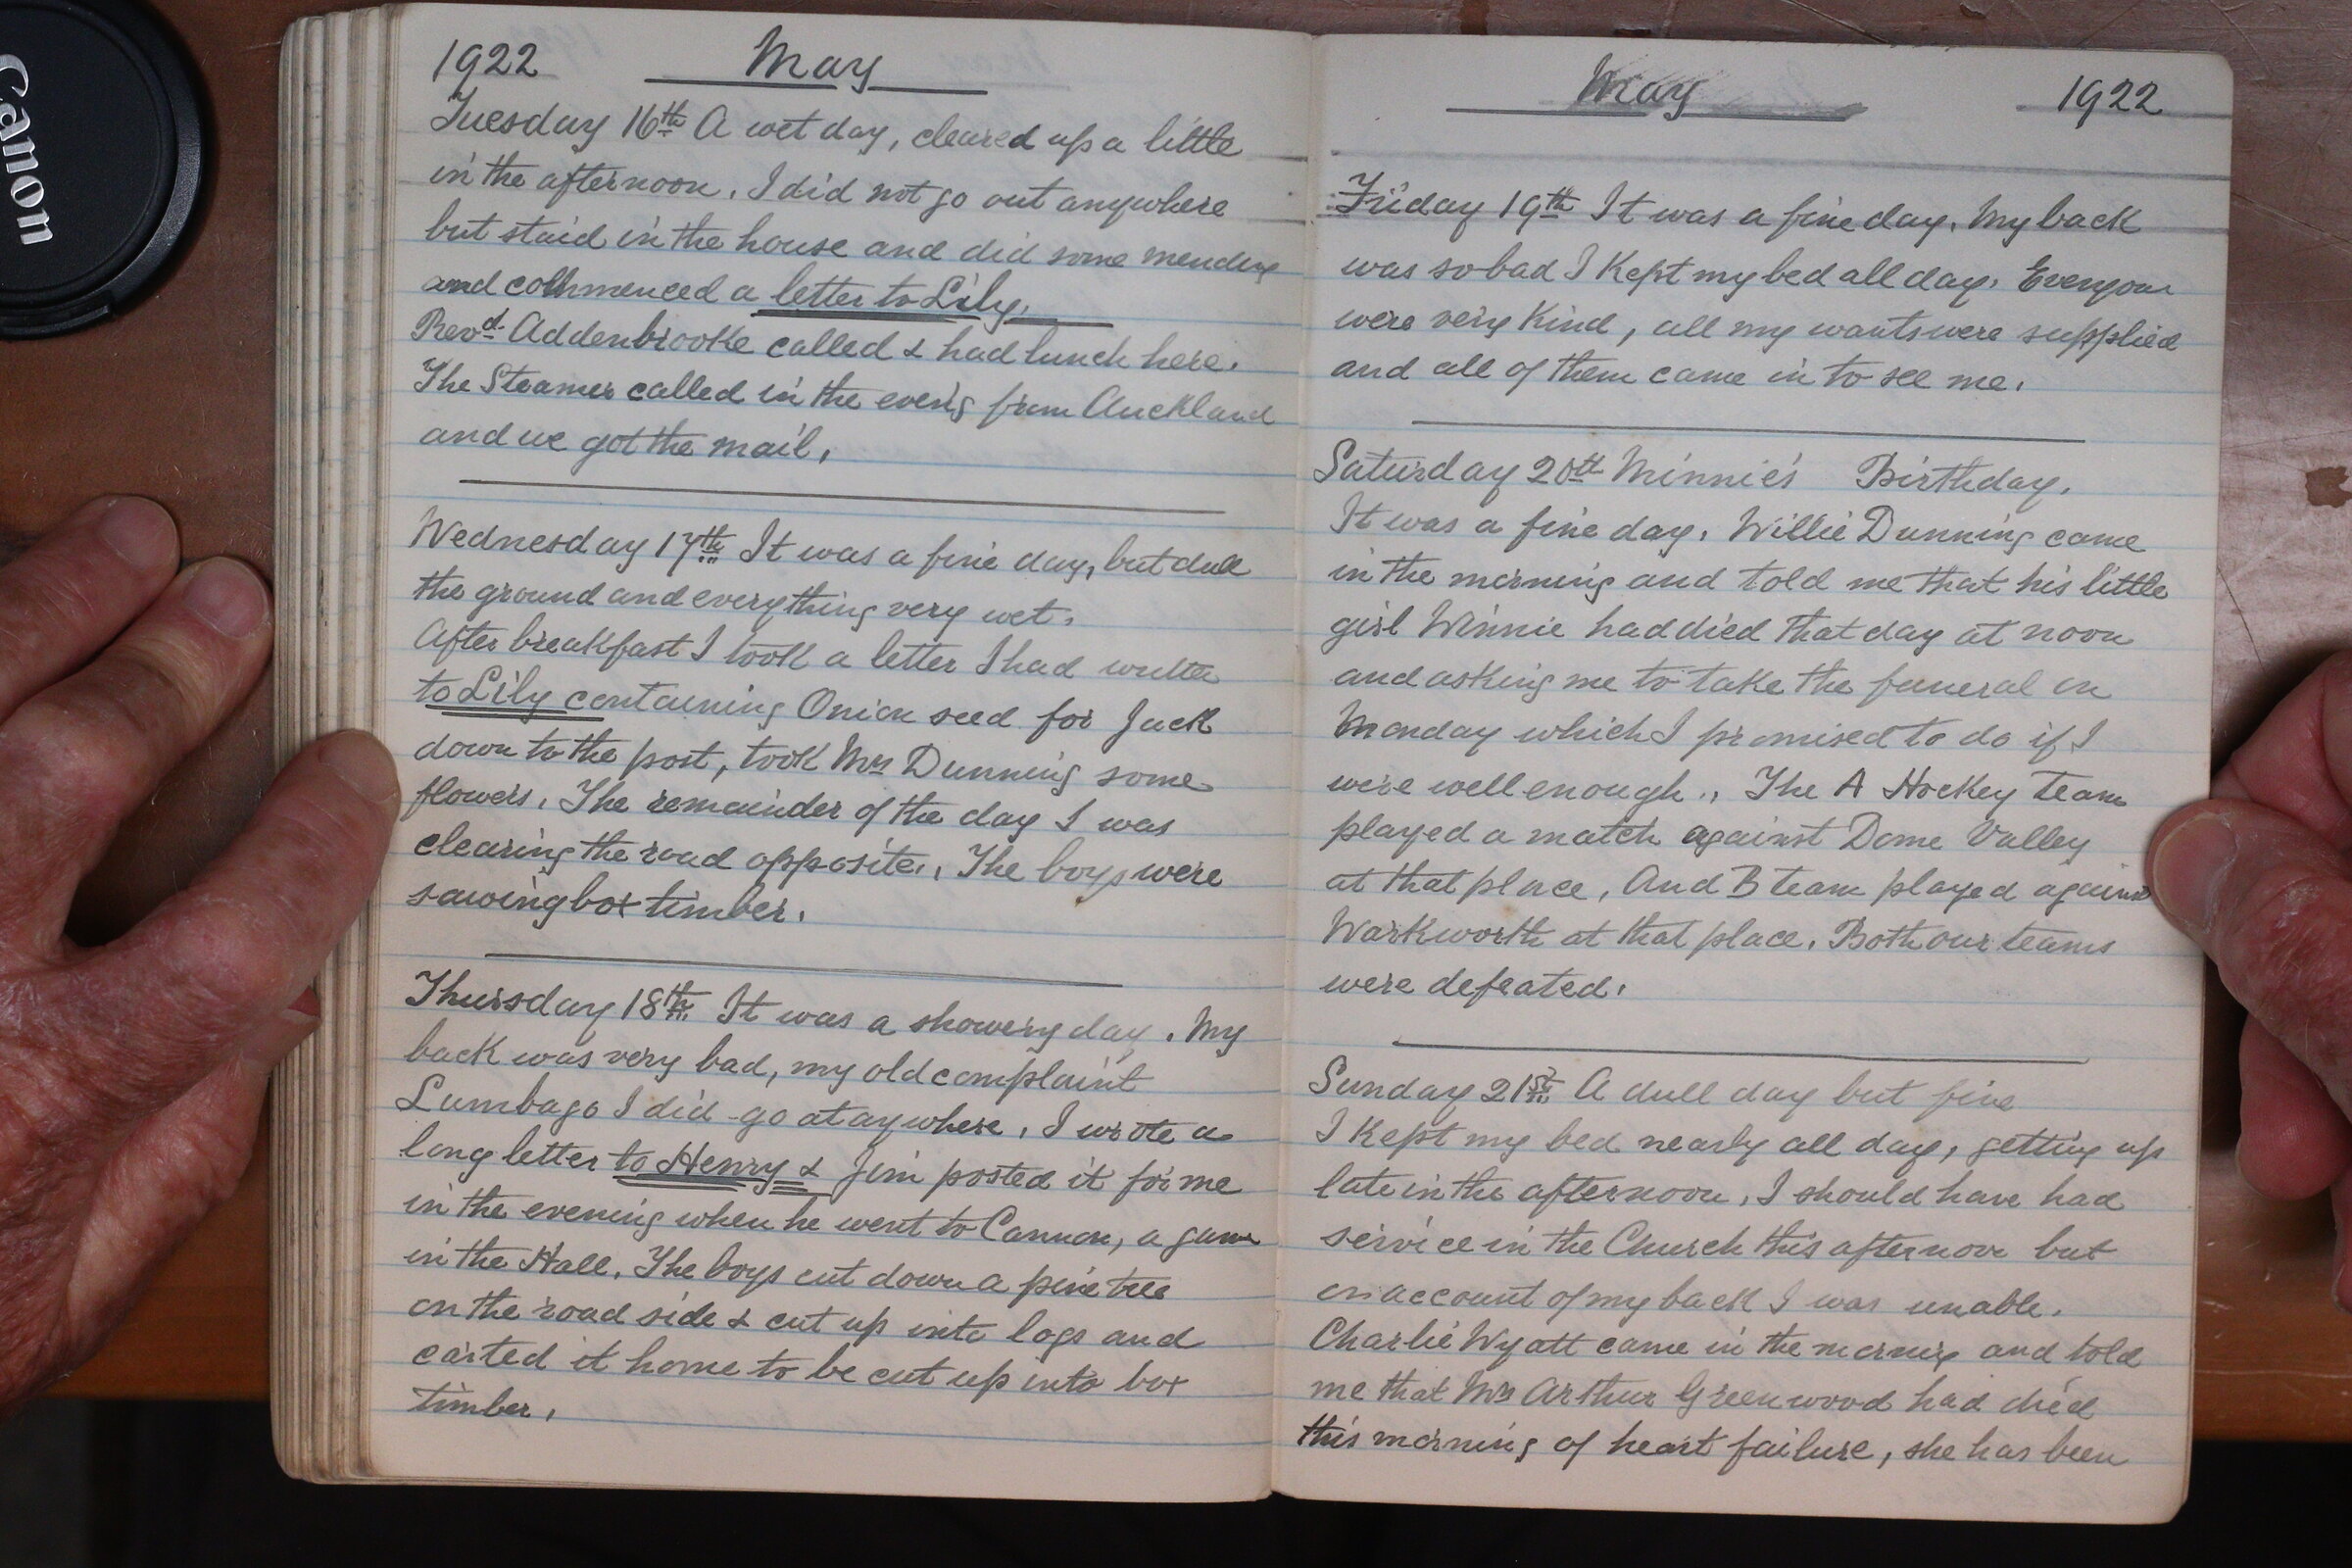 Canon
1922 May
Tuesday 16th A wet day, cleared up a little
in the afternoon. I did not go out anywhere
but staid in the house and did some mending
and commenced a letter to Lily.
Revd. Addenbrooke called & had lunch here.
The Steamer called in the even'g from Auckland
and we got the mail.
Wednesday 17th It was a fine day, but dull
the ground and everything very wet.
After breakfast I took a letter I had written
to Lily containing Onion seed for Jack
down to the post, took Mrs Dunning some
flowers. The remainder of the day I was
clearing the road opposite., The boys were
sawing box timber.
Thursday 18th It was a showery day. My
back was very bad, my old complaint
Lumbago I did go at aywhere. I wrote a
long letter to Henry & Jim posted it for me
in the evening when he went to Cannon, a game
in the Hall. The boys cut down a pine tree
on the road side & cut up into logs and
carted it home to be cut up into box
timber.
May 1922
Friday 19th It was a fine day. My back
was so bad I Kept my bed all day. Everyone
were very Kind, all my wants were supplied
and all of them came in to see me.
Saturday 20th Minnie's Birthday.
It was a fine day. Willie Dunning came
in the morning and told me that his little
girl Winnie had died that day at noon
and asking me to take the funeral on
Monday which I promised to do if I
were well enough., The A Hockey team
played a match against Dome Valley
at that place. And B team played against
Warkworth at that place. Both our teams
were defeated.
Sunday 21st A dull day but fine
I Kept my bed nearly all day, getting up
late in the afternoon. I should have had
service in the Church this afternoon but
on account of my back I was unable.
Charlie Wyatt came in the morning and told
me that Mrs Arthur Greenwood had died
this morning of heart failure, she has been